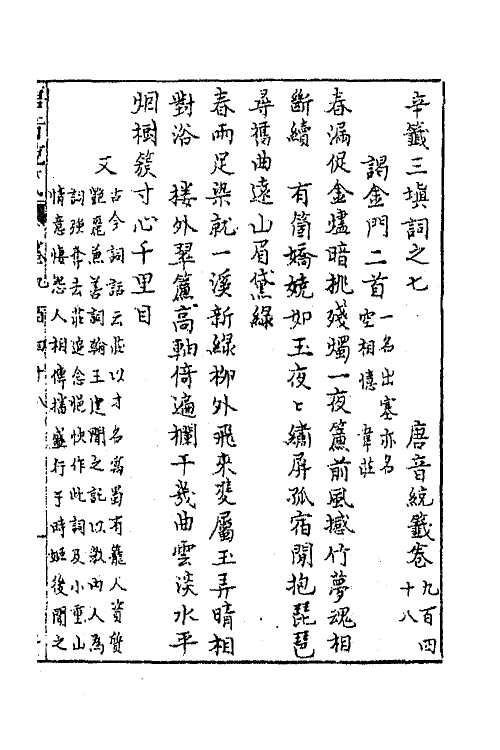 辛籤三填詞之七 唐音統籤卷九百四十八
謁金門二首一名出塞亦名空相憶 韋莊
春漏促金燼暗挑殘燭一夜簾前風撼竹夢魂相
斷續 有箇嬌嬈如玉夜〻繡屏孤宿閒抱琵琶
尋舊曲遠山眉黛緑
春雨足染就一溪新緑柳外飛來雙屬玉弄晴相
對浴 樓外翠簾高軸倚遍欄干幾曲雲淡水平
烟樹簇寸心千里目
又古今詞話云莊以才名寓蜀有寵人資質
艶麗兼善詞翰王建聞之託以教内人為
詞強奪去莊追念悒怏作此詞及小重山
情意悽怨人相傳播盛行于時姬後聞之